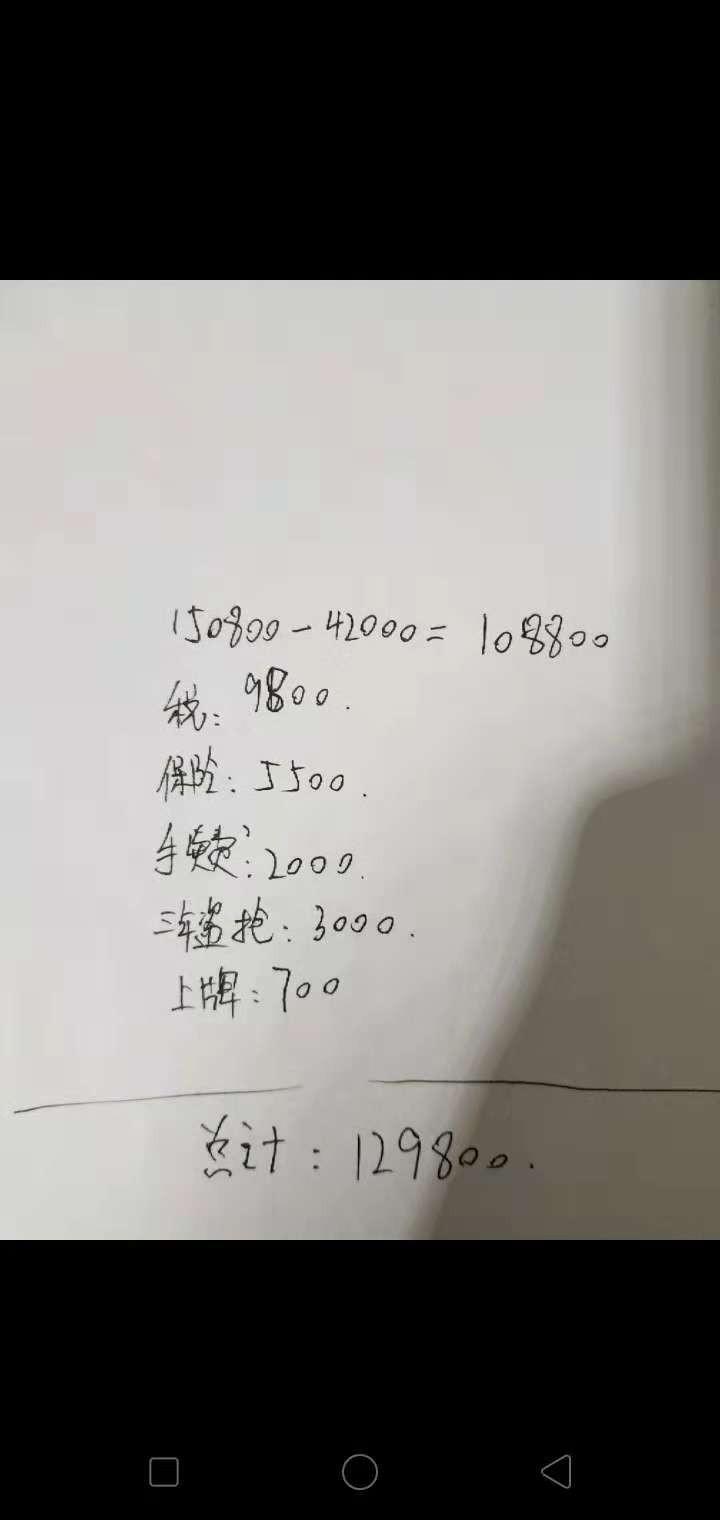 150800-42000=108800
税:9800.
保险:5500.
手续费:2000.
三年盗抢:3000.
上牌:700
总计:129800.